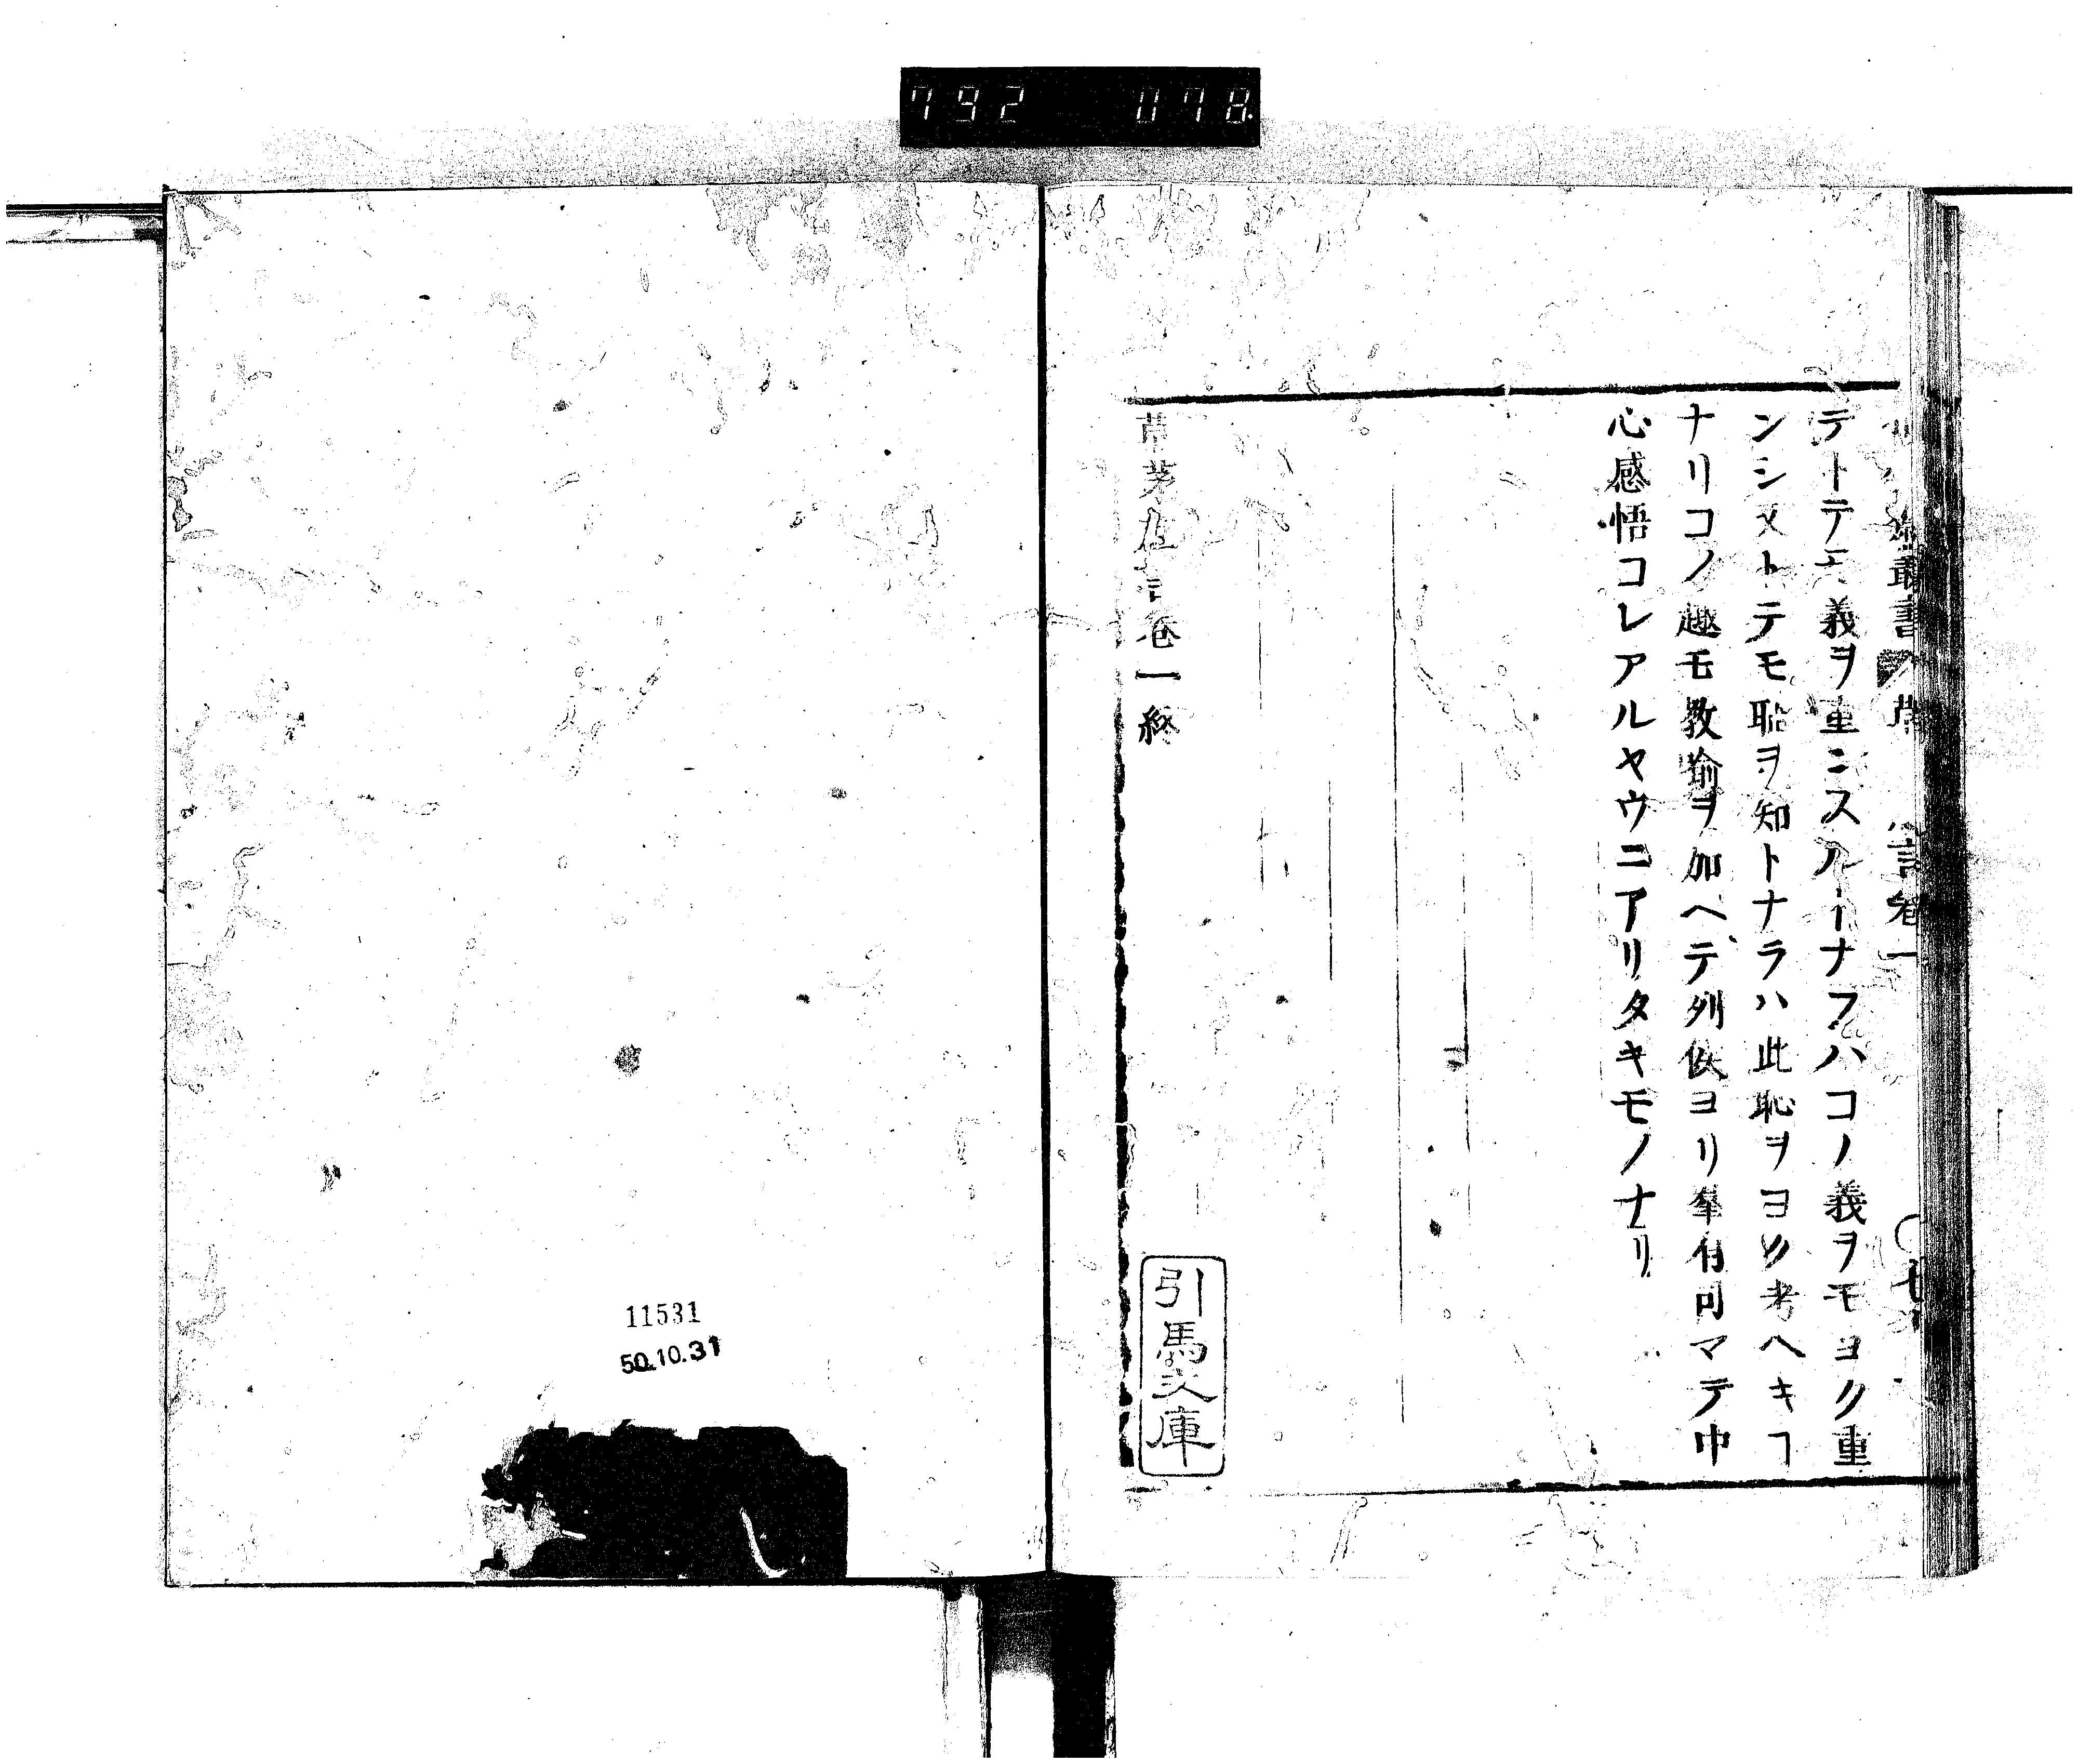 792 078
叢書 草 言卷一
テトテモ義ヲ重ニスルトナラハコノ義ヲモヨク重
ンシメトテモ耻ヲ知トナラハ此恥ヲヨク考ヘキヿ
ナリコノ趣モ教喻ヲ加ヘテ列侯ヨリ羣有司マテ中
心感悟コレアルヤウニアリタキモノナリ
草茅危言卷一終
引馬文庫
11531
50.10.31